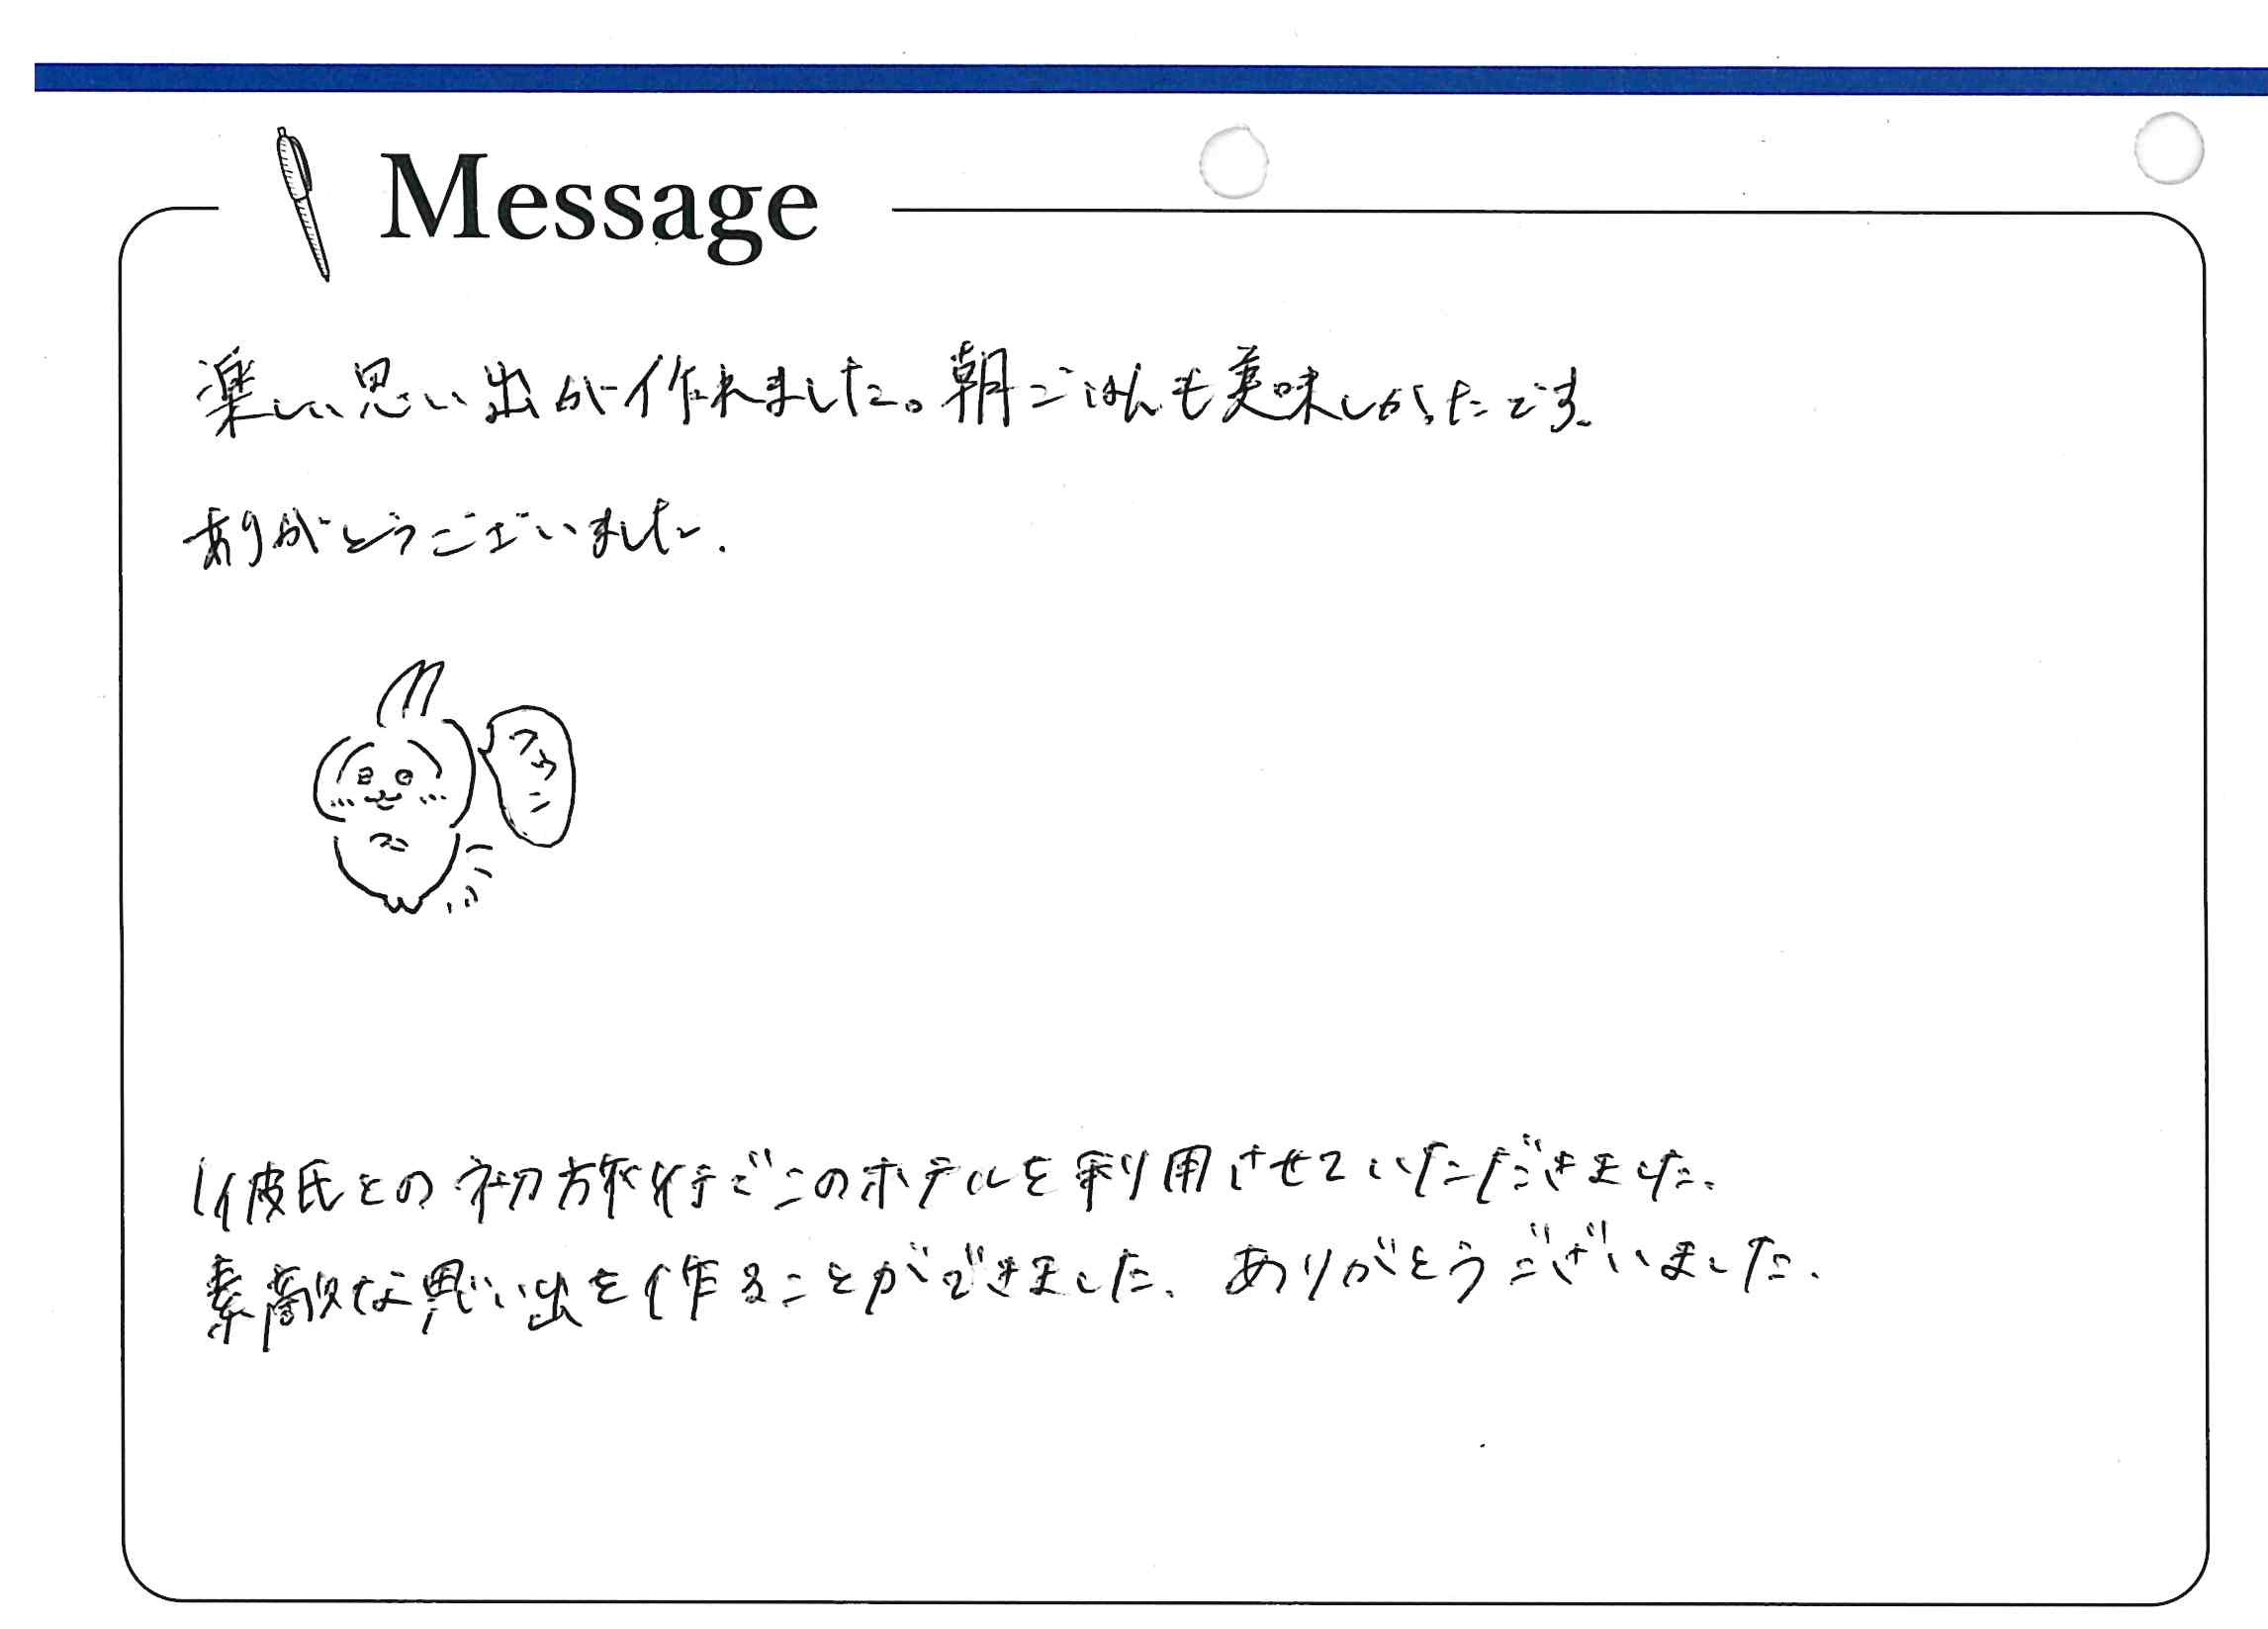 Message
楽しい思い出が作れました。朝ごはんも美味しかったです。
ありがとうございました.
彼氏との初旅行でこのホテルを利用させていただきました.
素敵な思い出を作ることができました. ありがとうございました.